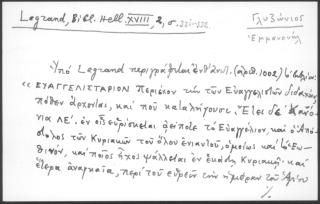 Legrand, Bibl. Hell. XVIII, 2, σ.
Γλυζώνιος
Ἐμμανουήλ
Ὑπὸ Legrand περιγράφεται ἐνθ' ἀνωτ. (ἀριθ. 1002)
«ΕΥΑΓΓΕΛΙΣΤΑΡΙΟΝ Περιέχον τὴν τῶν Εὐαγγελιστῶν διδαχήν,
πόθεν ἄρχονται, καὶ ποῦ καταλήγουσι. Ἔτι δὲ Κανό-
νια ΛΕ΄. ἐν οἷς εὑρίσκεται ἀείποτε τὸ Εὐαγγέλιον, καὶ ὁ Ἀπό-
στολος τῶν Κυριακῶν τοῦ ὅλου ἐνιαυτοῦ, ὁμοίως καὶ τὸ Ἑω-
θινόν, καὶ ποῖος ἦχος ψάλλεται ἐν ἑκάστῃ Κυριακῇ· καὶ
ἕτερα ἀναγκαῖα, περὶ τοῦ εὑρεῖν τὴν ἡμέραν τοῦ Ἁγίου
./.